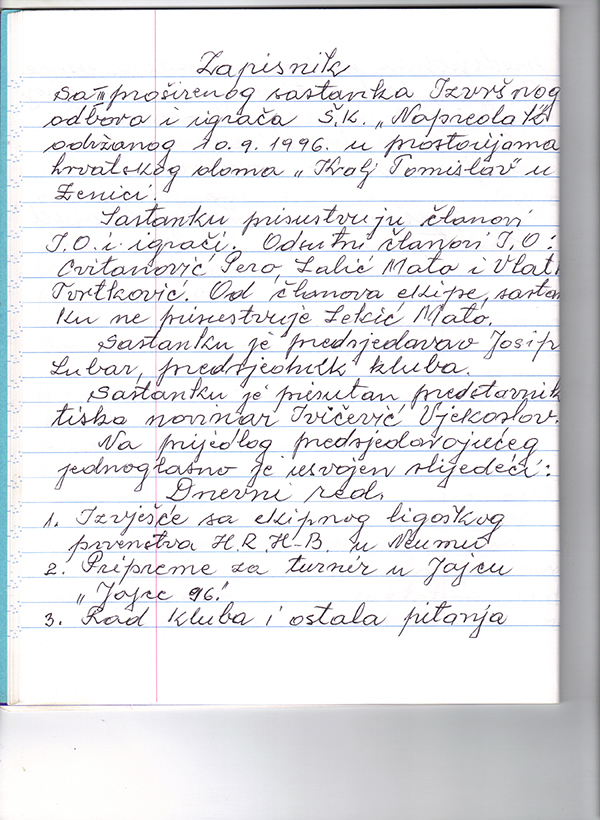 Zapisnik
sa III proširenog sastanka Izvršnog
odbora i igrača Š.K. „Napredak"
održanog 10.9.1996. u prostorijama
hrvatskog doma „Kralj Tomislav" u
Zenici.
Sastanku prisustvuju članovi
I.O. i igrači. Odsutni članovi I.O:
Cvitanović Pero, Lalić Mato i Vlat
Tvrtković. Od članova ekipe, sastan
ku ne prisustvuje Lekić Mato.
Sastanku je predsjedavao Josip
Lubar, predsjednik kluba.
Sastanku je prisutan predstavnik
tiska novinar Ivičević Vjekoslov.
Na prijedlog predsjedavajućeg
jednoglasno je usvojen slijedeći:
Dnevni red.
1. Izvješće sa ekipnog ligaškog
prvenstva H.R.H-B. u Neumu
2. Pripreme za turnir u Jajcu
„Jajce 96."
3. Rad kluba i ostala pitanja